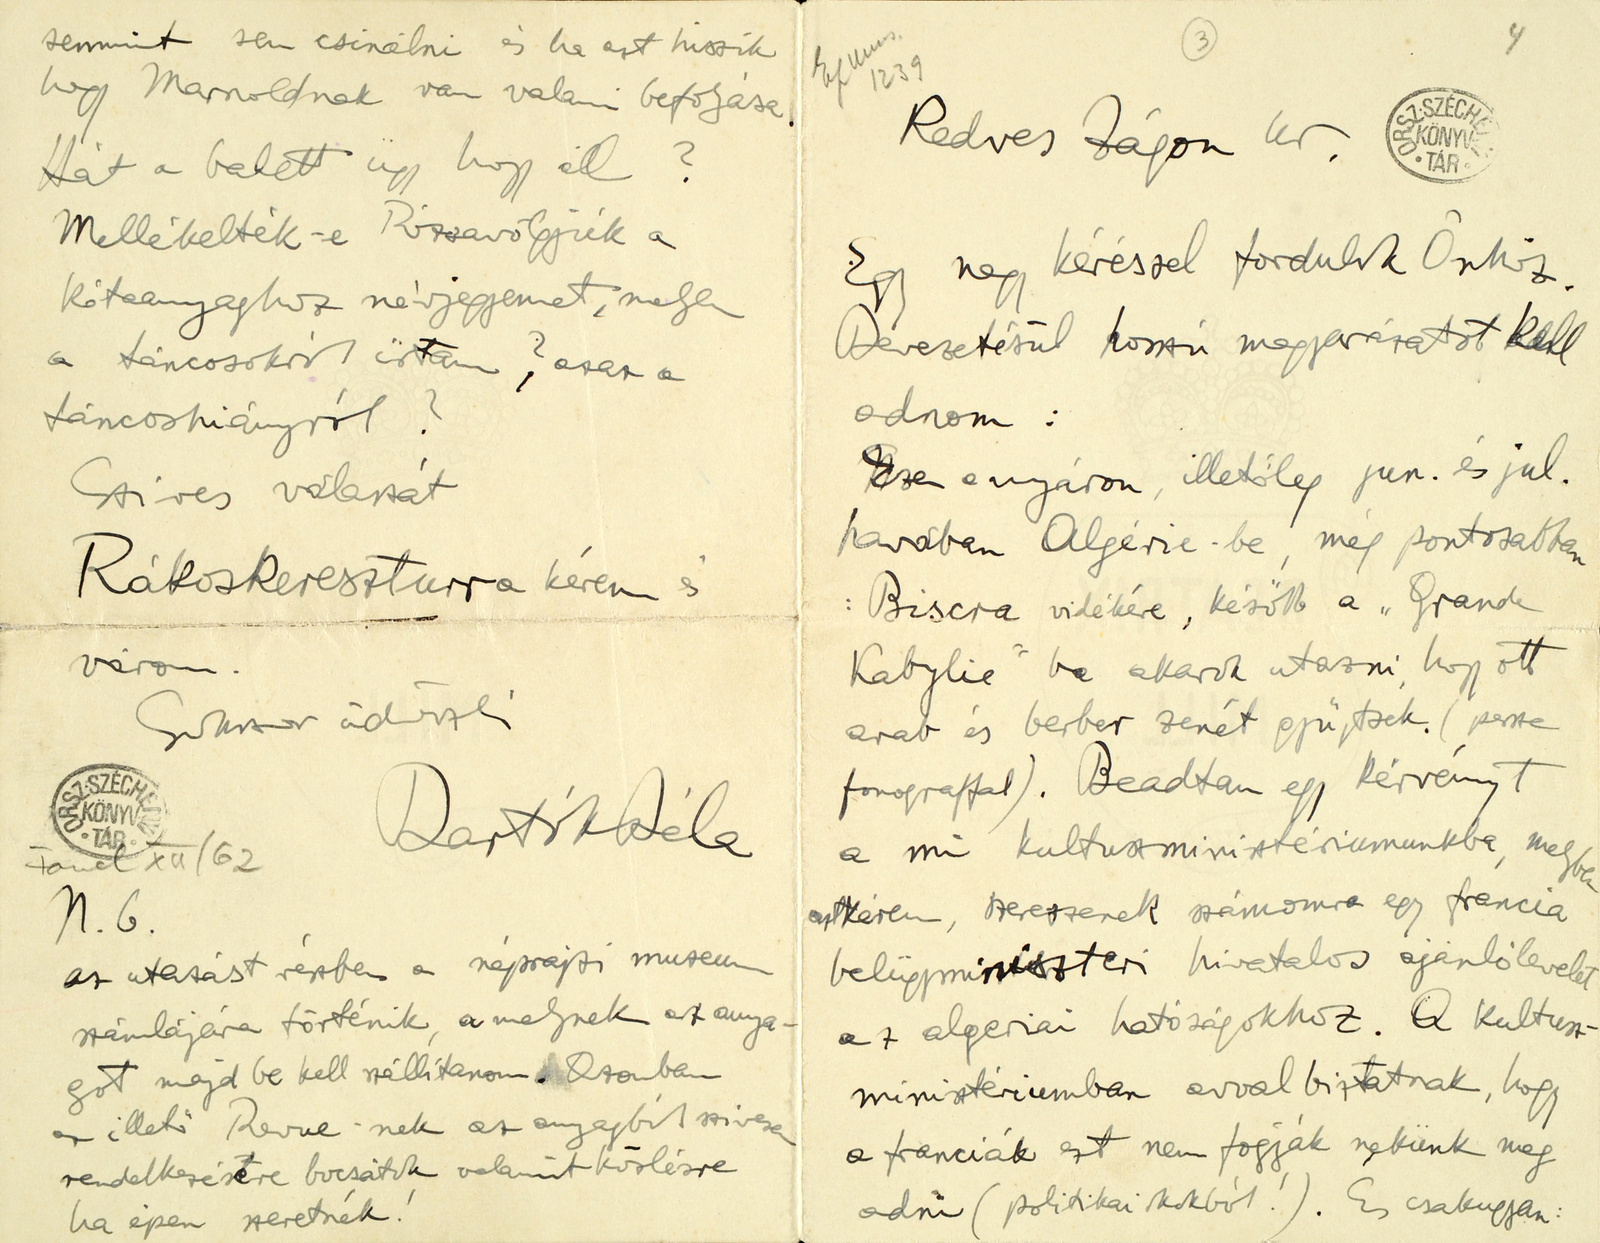 semmint sem csinálni és ha azt hiszik
hogy Marnoldnak van valami befolyása.
Hát a balett ügy hogy áll ?
Mellékelték-e Rózsavölgyiék a
kótaanyaghoz névjegyemet, melyen
a táncosokról írtam ?, azaz a
táncoshiányról ?
Szives válaszát
Rákoskereszturra kérem és
várom.
Sokszor üdvözli
Bartók Béla
ORSZ. SZÉCHÉNYI
KÖNYV
TÁR
XII/62
N. B.
az utazást részben a néprajzi museum
számlájára történik, a melynek az anya-
got majd be kell szállítanom. Azonban
az illető Revue-nek az anyagból szivesen
rendelkezésére bocsátok valamit közlésre
ha épen szeretnék!
1239
3
4
Kedves Zágon úr.
ORSZ. SZÉCHÉNYI
KÖNYV
TÁR
Egy nagy kéréssel fordulok Önhöz.
Bevezetésül hosszú magyarázatot kell
adnom :
Ezen a nyáron, illetőleg jun. és jul.
havában Algérie-be, még pontosabban
: Biscra vidékére, később a „Grande
Kabylie" ba akarok utazni, hogy ott
arab és berber zenét gyűjtsek. (persze
fonograffal). Beadtam egy kérvényt
a mi kultuszminisztériumunkba, melyben
azt kérem, szerezzenek számomra egy francia
belügyminiszteri hivatalos ajánlólevelet
az algériai hatóságokhoz. A kultusz-
minisztériumban avval biztatnak, hogy
a franciák ezt nem fogják nekünk meg
adni (politikai okokból!). És csakugyan: